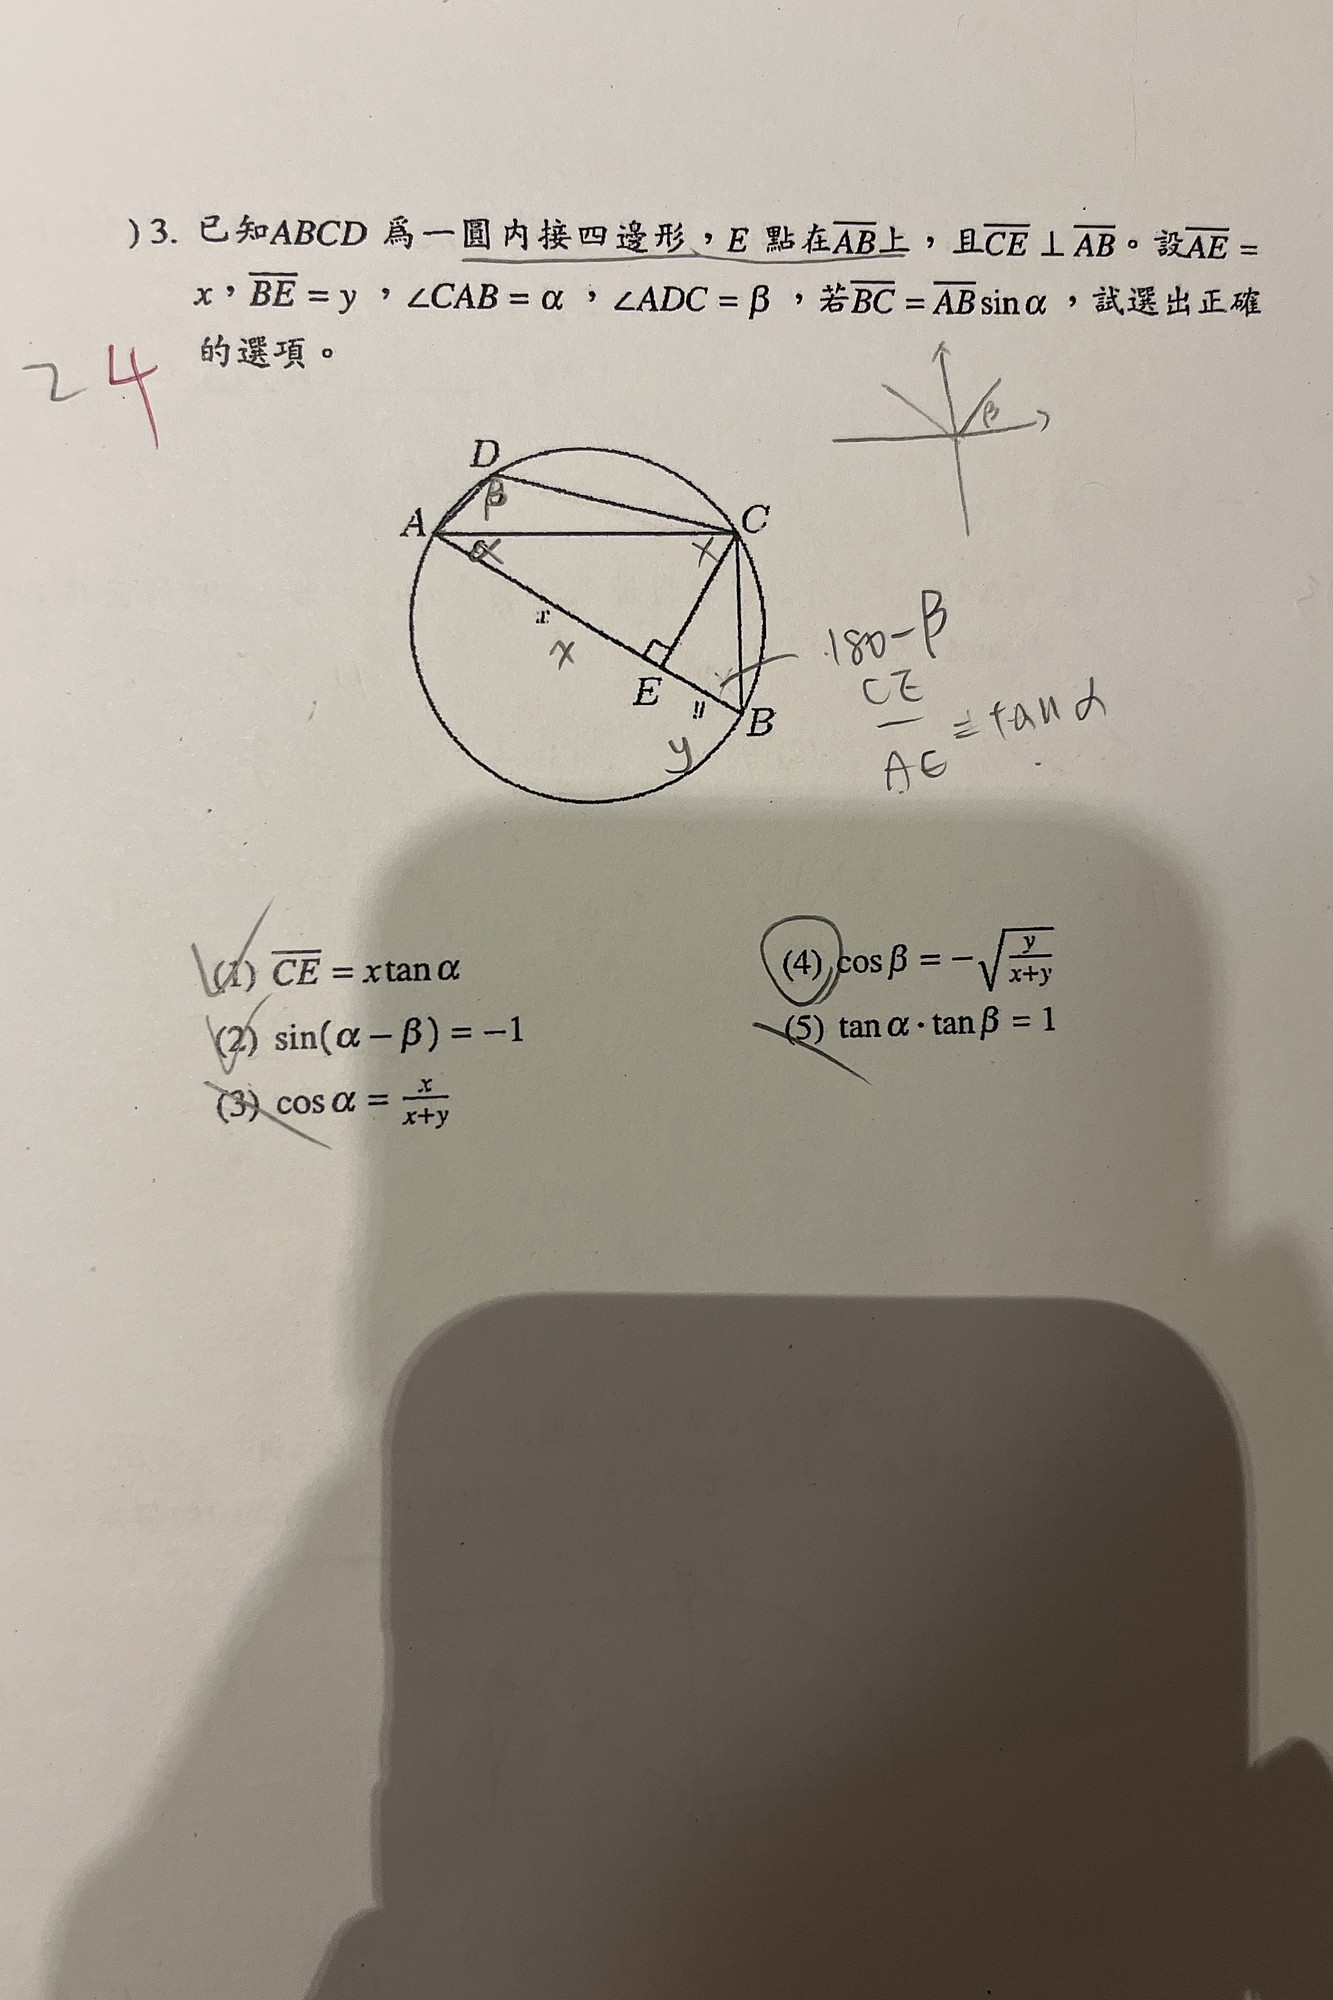 )3. 已知ABCD 爲一圓內接四邊形，E 點在AB上，且CE⊥AB。設AE=
x，BE=y，∠CAB=α，∠ADC=β，若BC=AB sinα，試選出正確
的選項。
2 4
β
D
β
A
C
α
x
x
x
E
y
B
y
180-β
CE
—
AE
=tanα
(1) CE=x tanα
(2) sin(α-β)=-1
(3) cosα=x/(x+y)
(4) cosβ=-√(y/(x+y))
(5) tanα·tanβ=1